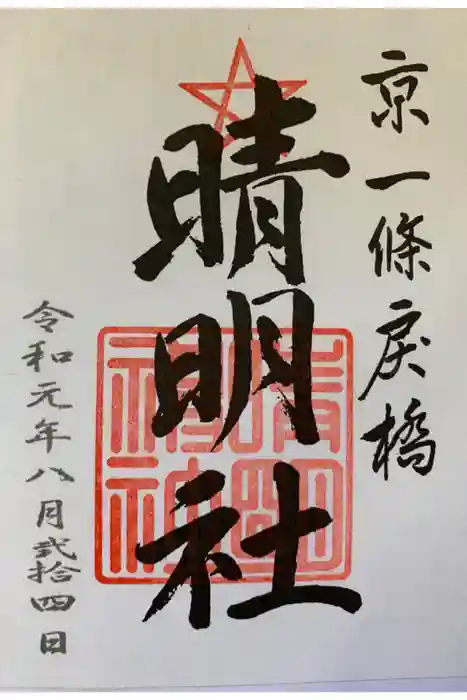 京一條戻橋
晴明社
晴明
神社
令和元年八月弐拾四日